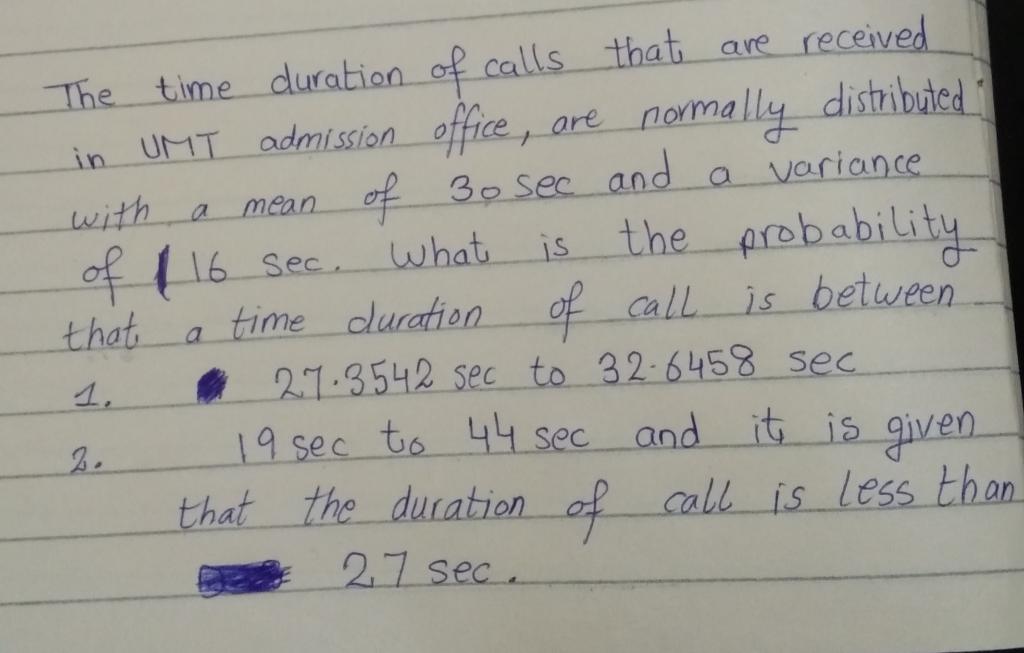 The time duration of calls that are received
in UMT admission office, are normally distributed
with a mean of 30 sec and a variance
of 16 sec. What is the probability
that a time duration of call is between
1. 27.3542 sec to 32.6458 sec
2. 19 sec to 44 sec and it is given
that the duration of call is less than
27 sec.